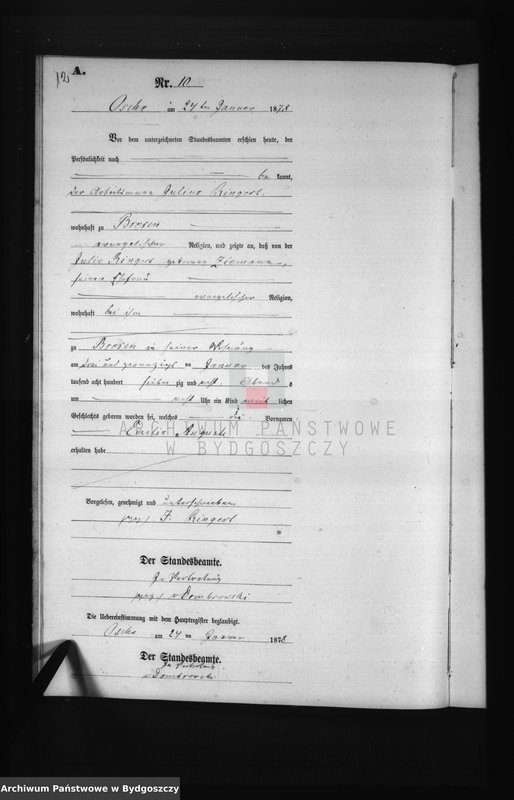 12
A.
Nr. 10
Osche am 24 ten Januar 1878
Vor dem unterzeichneten Standesbeamten erschien heute, der
Persönlichkeit nach
be kannt,
der Arbeitsmann Julius Ringert
wohnhaft zu Bresin
evangelischer Religion, und zeigte an, daß von der
Julie Ringert geborene Ziemann,
seiner Ehefrau
evangelischer Religion,
wohnhaft bei ihm
zu Bresin in seiner Wohnung
am drei und zwanzigsten Januar des Jahres
tausend acht hundert sieben zig und acht Abend s
um acht Uhr ein Kind weib lichen
Geschlechts geboren worden sei, welches die Vornamen
Emilie Auguste
erhalten habe
Vorgelesen, genehmigt und unterschrieben
gez.) J. Ringert
Der Standesbeamte.
In Vertretung
gez.) v Dombrowski
Die Uebereinstimmung mit dem Hauptregister beglaubigt.
Osche am 24 ten Januar 1878
Der Standesbeamte.
In Vertretung
v Dombrowski
ARCHIWUM PAŃSTWOWE
W BYDGOSZCZY
Archiwum Państwowe w Bydgoszczy